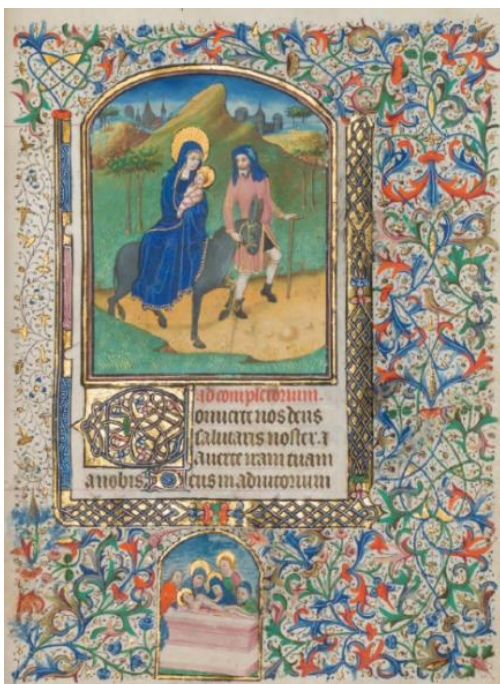 ad completorium.
Conuerte nos deus
salutaris noster. ⁊
auerte iram tuam
a nobis Deus in adiutorium